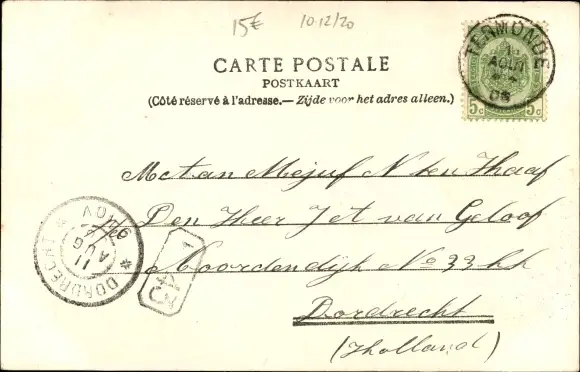 15€ 10-12/20
CARTE POSTALE
POSTKAART
(Côté réservé à l'adresse.— Zijde voor het adres alleen.)
TERMONDE
11
AOUT
08
5c 5c
Met an Mejuf N ten Thaaf
p/a Den Heer Jet van Geloof
Noordendijk No 33 hh
Dordrecht
(Holland)
DORDRECHT
11
AUG
1